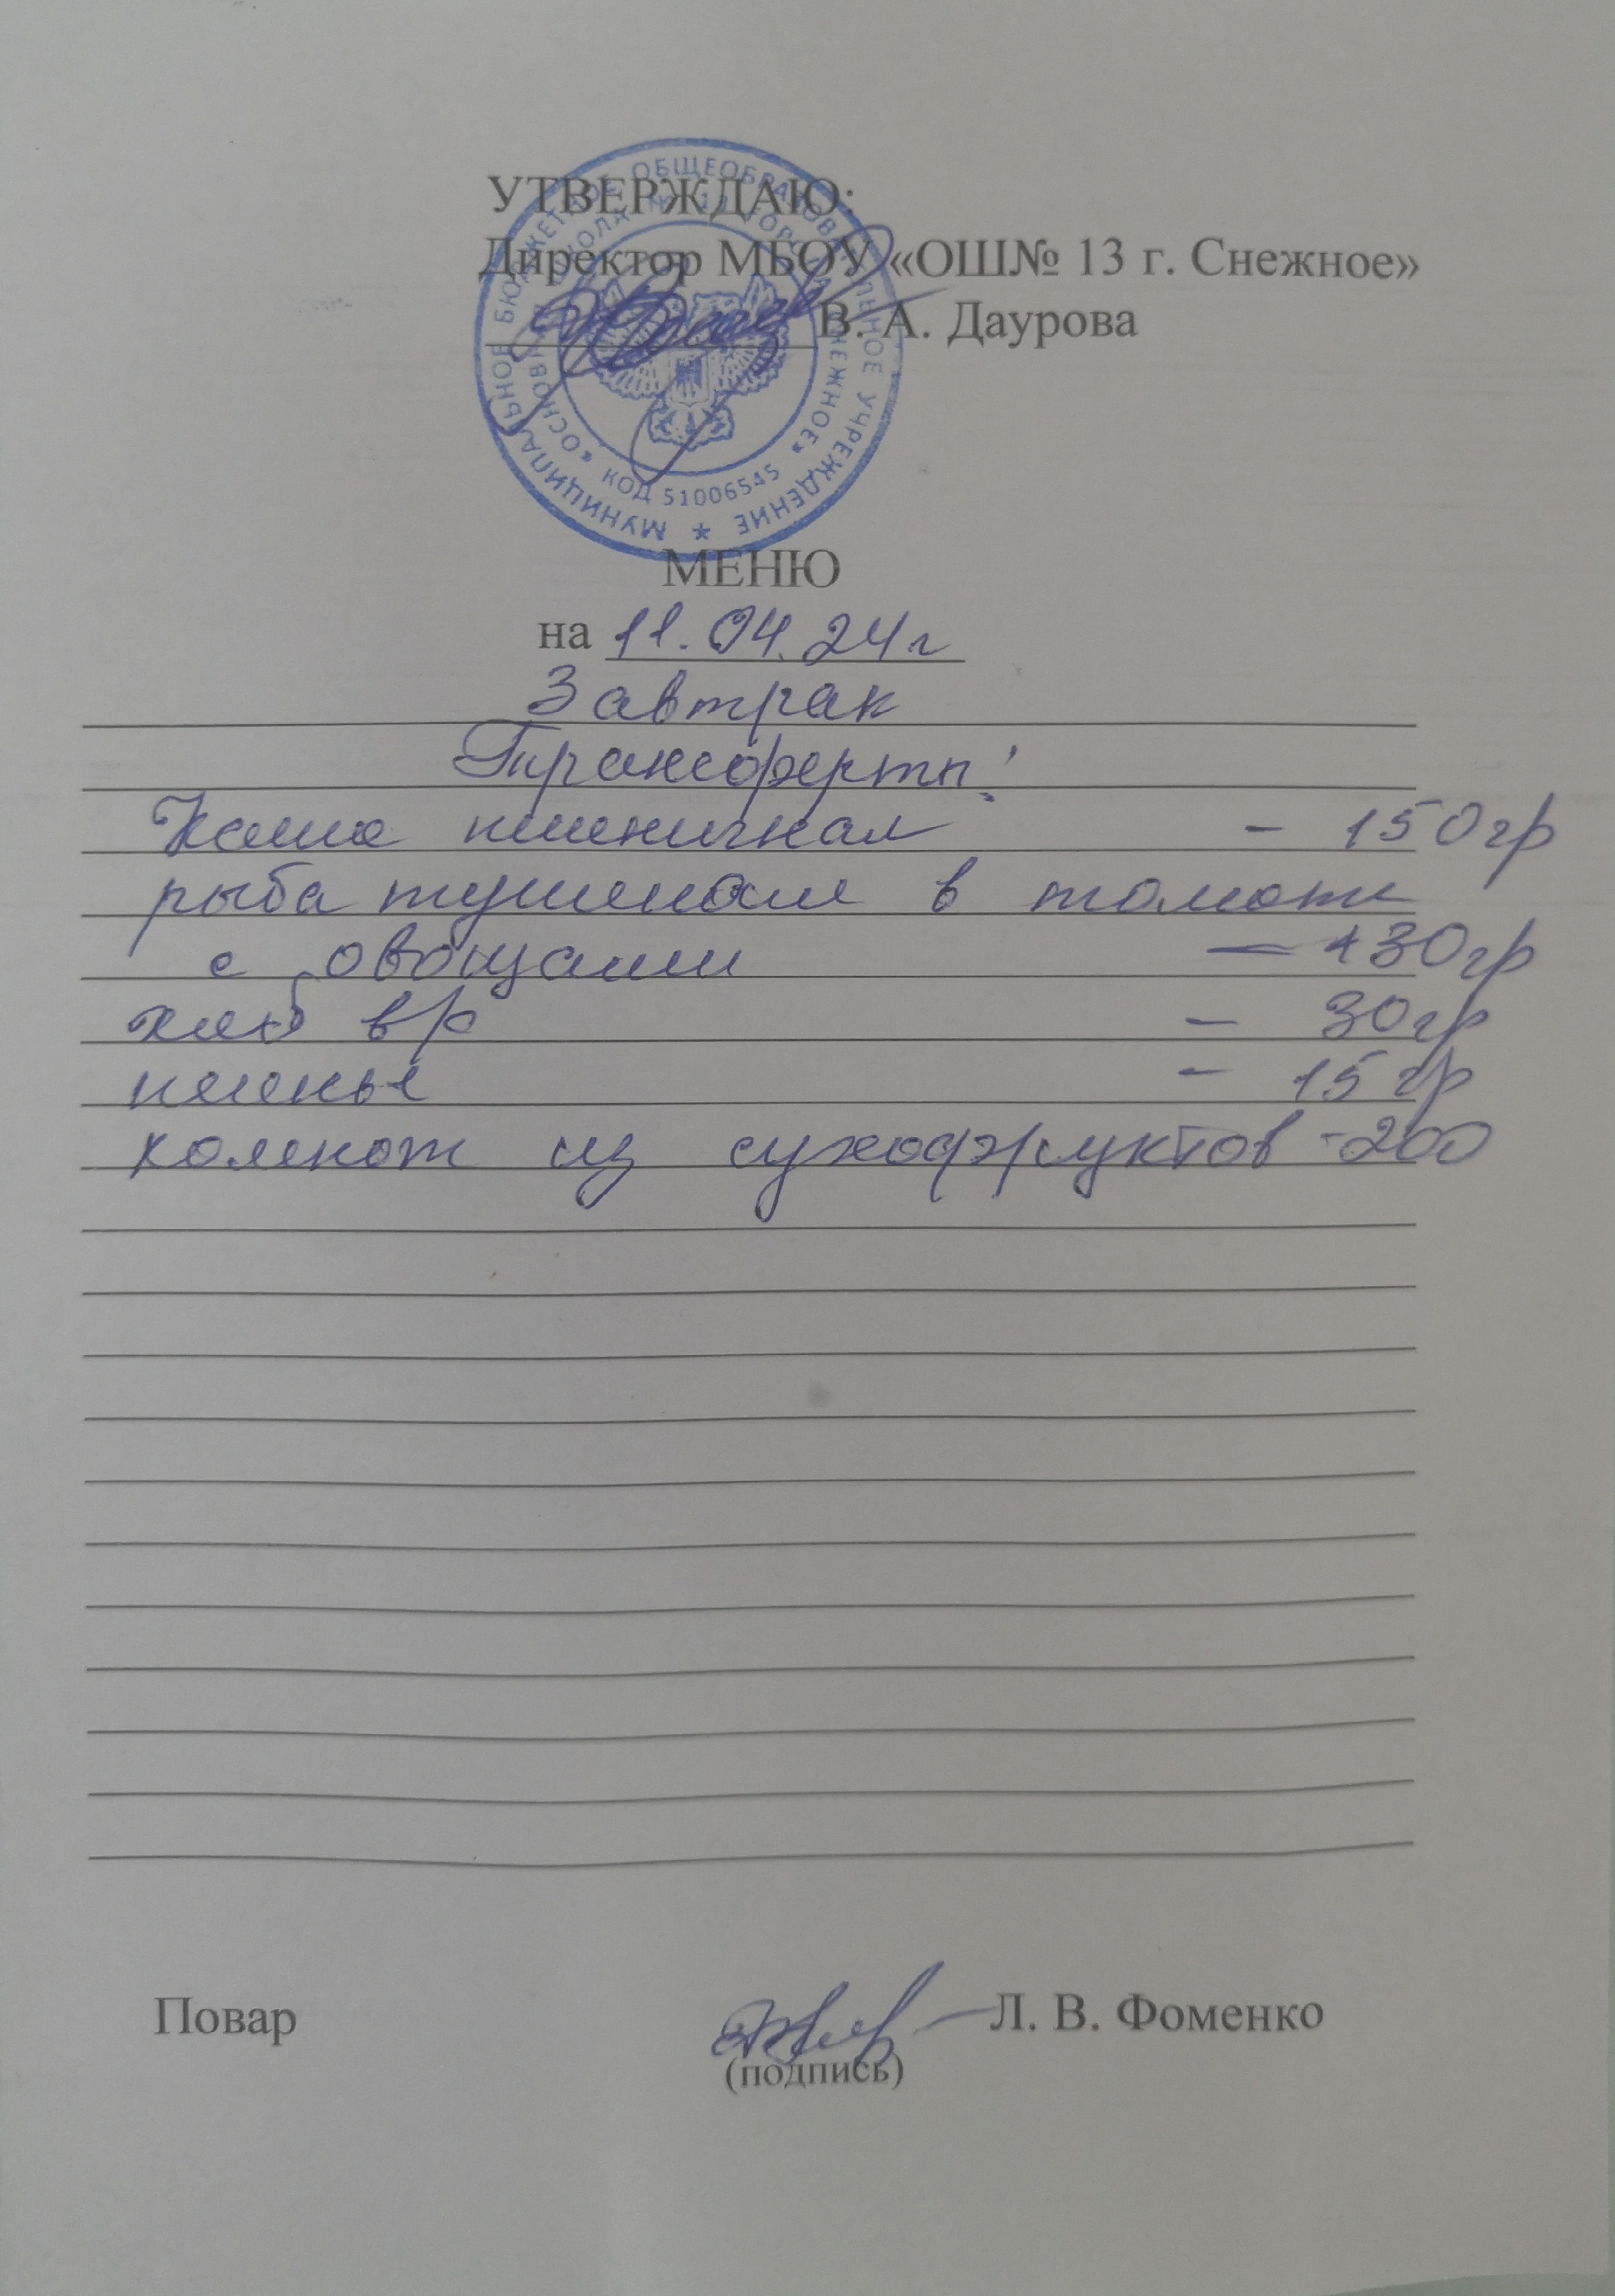 УТВЕРЖДАЮ:
Директор МБОУ «ОШ№ 13 г. Снежное»
В. А. Даурова
МУНИЦИПАЛЬНОЕ БЮДЖЕТНОЕ ОБЩЕОБРАЗОВАТЕЛЬНОЕ УЧРЕЖДЕНИЕ
КОД 51006545
МЕНЮ
на 11.04.24г
Завтрак
Трансферты:
Каша пшеничная - 150гр
рыба тушеная в томате
с овощами - 130гр
хлеб в/с - 30гр
печенье - 15 гр
компот из сухофруктов - 200
Повар Л. В. Фоменко
(подпись)